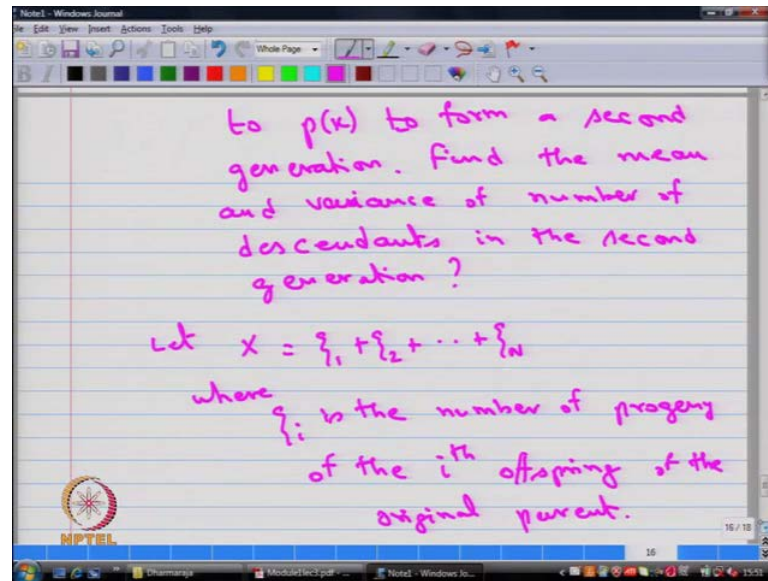 Note1 - Windows Journal
File Edit View Insert Actions Tools Help
Whole Page
to p(x) to form a second
generation. Find the mean
and variance of number of
descendants in the second
generation?
Let X = ξ₁ + ξ₂ + ··· + ξ_N
where
ξᵢ is the number of progeny
of the iᵗʰ offspring of the
original parent.
NPTEL
16 / 18
16
Dharmaraja Module1lec3.pdf - ... Note1 - Windows Jo... 15:51